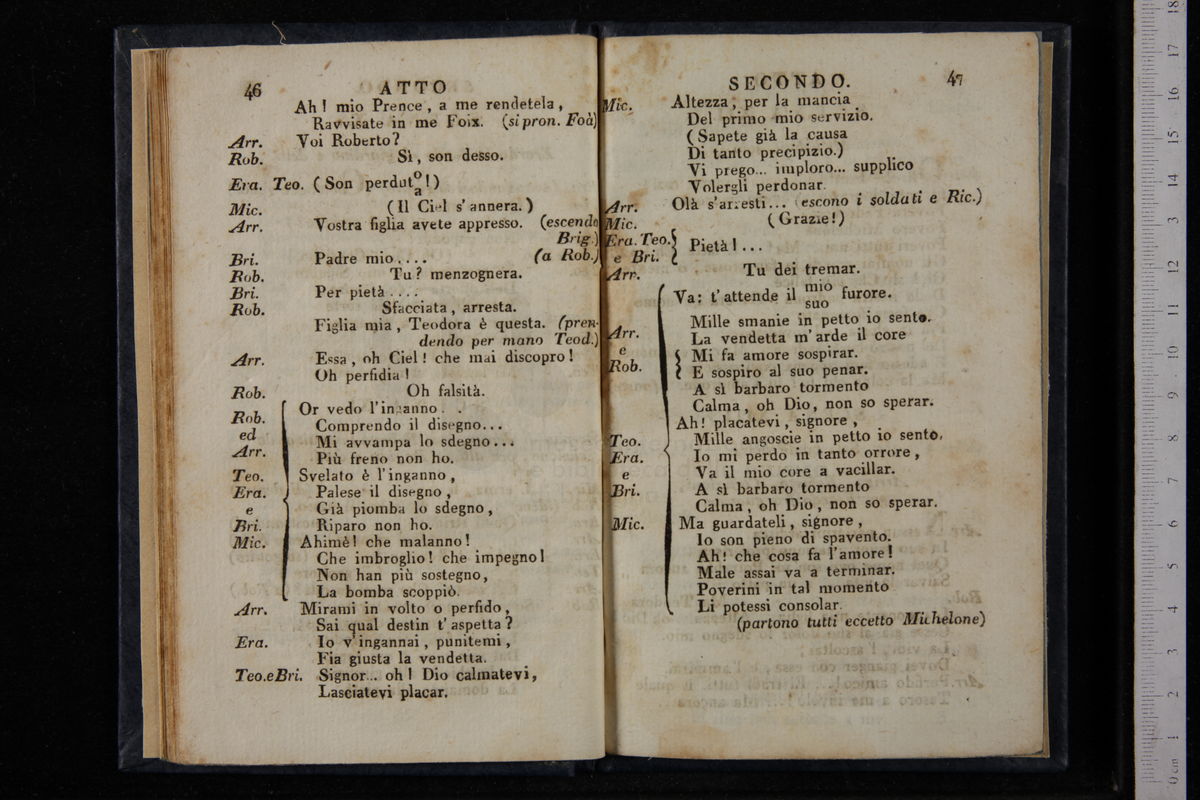 46 ATTO
Ah! mio Prence, a me rendetela,
Ravvisate in me Foix. (si pron. Foà)
Arr. Voi Roberto?
Rob. Sì, son desso.
Era. Teo. (Son perdut o/a!)
Mic. (Il Ciel s'annera.)
Arr. Vostra figlia avete appresso. (escendo
Brig.)
Bri. Padre mio.... (a Rob.)
Rob. Tu? menzognera.
Bri. Per pietà....
Rob. Sfacciata, arresta.
Figlia mia, Teodora è questa. (pren-
dendo per mano Teod.)
Arr. Essa, oh Ciel! che mai discopro!
Oh perfidia!
Rob. Oh falsità.
Rob. ed Arr. Or vedo l'inganno..
Comprendo il disegno...
Mi avvampa lo sdegno...
Più freno non ho.
Teo. Svelato è l'inganno,
Era. Palese il disegno,
e Già piomba lo sdegno,
Bri. Riparo non ho.
Mic. Ahimè! che malanno!
Che imbroglio! che impegno!
Non han più sostegno,
La bomba scoppiò.
Arr. Mirami in volto o perfido,
Sai qual destin t'aspetta?
Era. Io v'ingannai, punitemi,
Fia giusta la vendetta.
Teo. e Bri. Signor... oh! Dio calmatevi,
Lasciatevi placar.
SECONDO. 47
Mic. Altezza, per la mancia
Del primo mio servizio.
(Sapete già la causa
Di tanto precipizio.)
Vi prego... imploro... supplico
Volergli perdonar.
Arr. Olà s'arresti... (escono i soldati e Ric.)
Mic. (Grazie!)
Era. Teo. e Bri. Pietà!...
Arr. Tu dei tremar.
Va; t'attende il mio/suo furore.
Arr. Mille smanie in petto io sento.
La vendetta m'arde il core
e Mi fa amore sospirar.
Rob. E sospiro al suo penar.
A sì barbaro tormento
Calma, oh Dio, non so sperar.
Ah! placatevi, signore,
Teo. Mille angoscie in petto io sento,
Era. Io mi perdo in tanto orrore,
e Va il mio core a vacillar.
Bri. A sì barbaro tormento
Calma, oh Dio, non so sperar.
Mic. Ma guardateli, signore,
Io son pieno di spavento.
Ah! che cosa fa l'amore!
Male assai va a terminar.
Poverini in tal momento
Li potessi consolar.
(partono tutti eccetto Michelone)